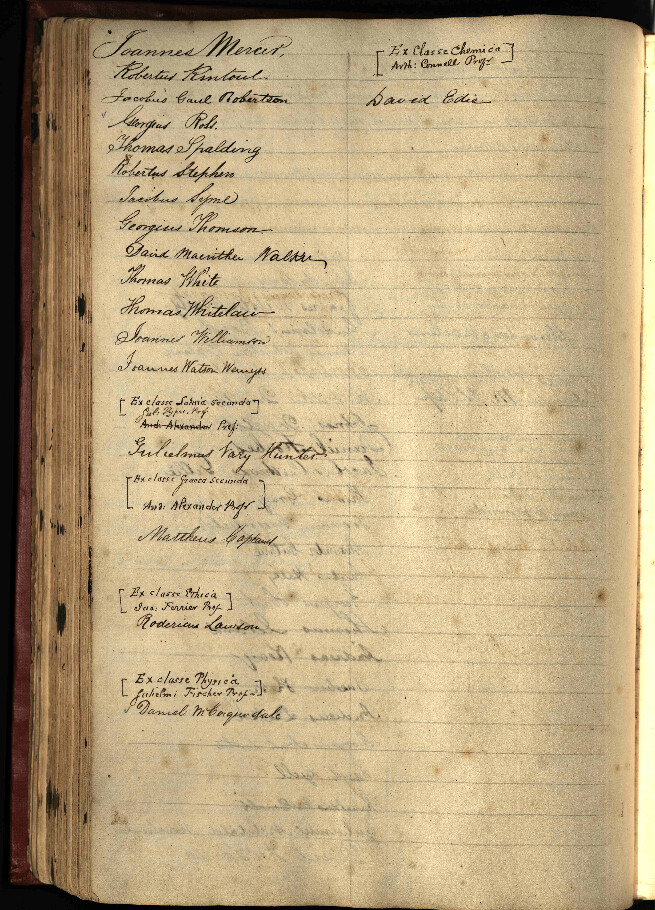 Joannes Mercer.
Robertus Kintoul.
Jacobus Gaul Robertson
Georgius Ross.
Thomas Spalding
Robertus Stephen
Jacobus Syme
Georgius Thomson
David Walker
Thomas White
Thomas Whitelaw
Joannes Williamson
Joannes Watson Wemyss
[Ex classe secunda]
Gul: Pyper. Prof
And: Alexander Prof:
Gulielmus Vary Hunter.
[Ex classe Graeca secunda
And: Alexander Profr]
Mattheus Copland
[Ex classe Ethica
Jac: Ferrier Prof]
Rodericus Lawson
[Ex classe Physica
Gulielmi Fischer Profr]
Daniel McCorquodale
[Ex Classe Chemica
Arth: Connell Profr]
David Edie